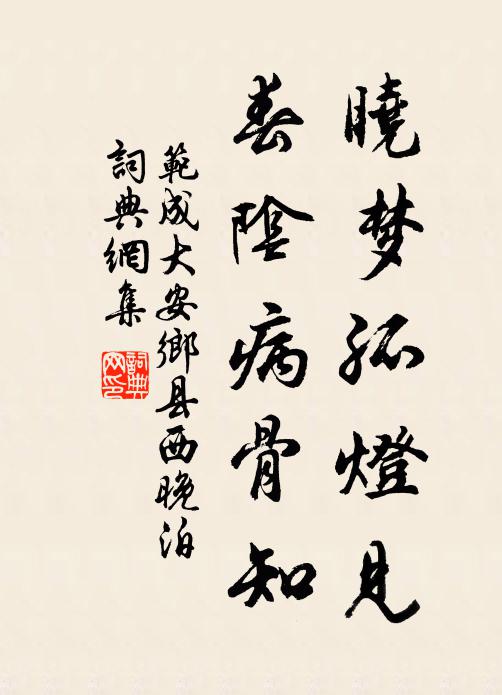 曉梦孤燈見
春陰病骨知
範成大安鄉县西晚泊
詞典網集
詞典
网印